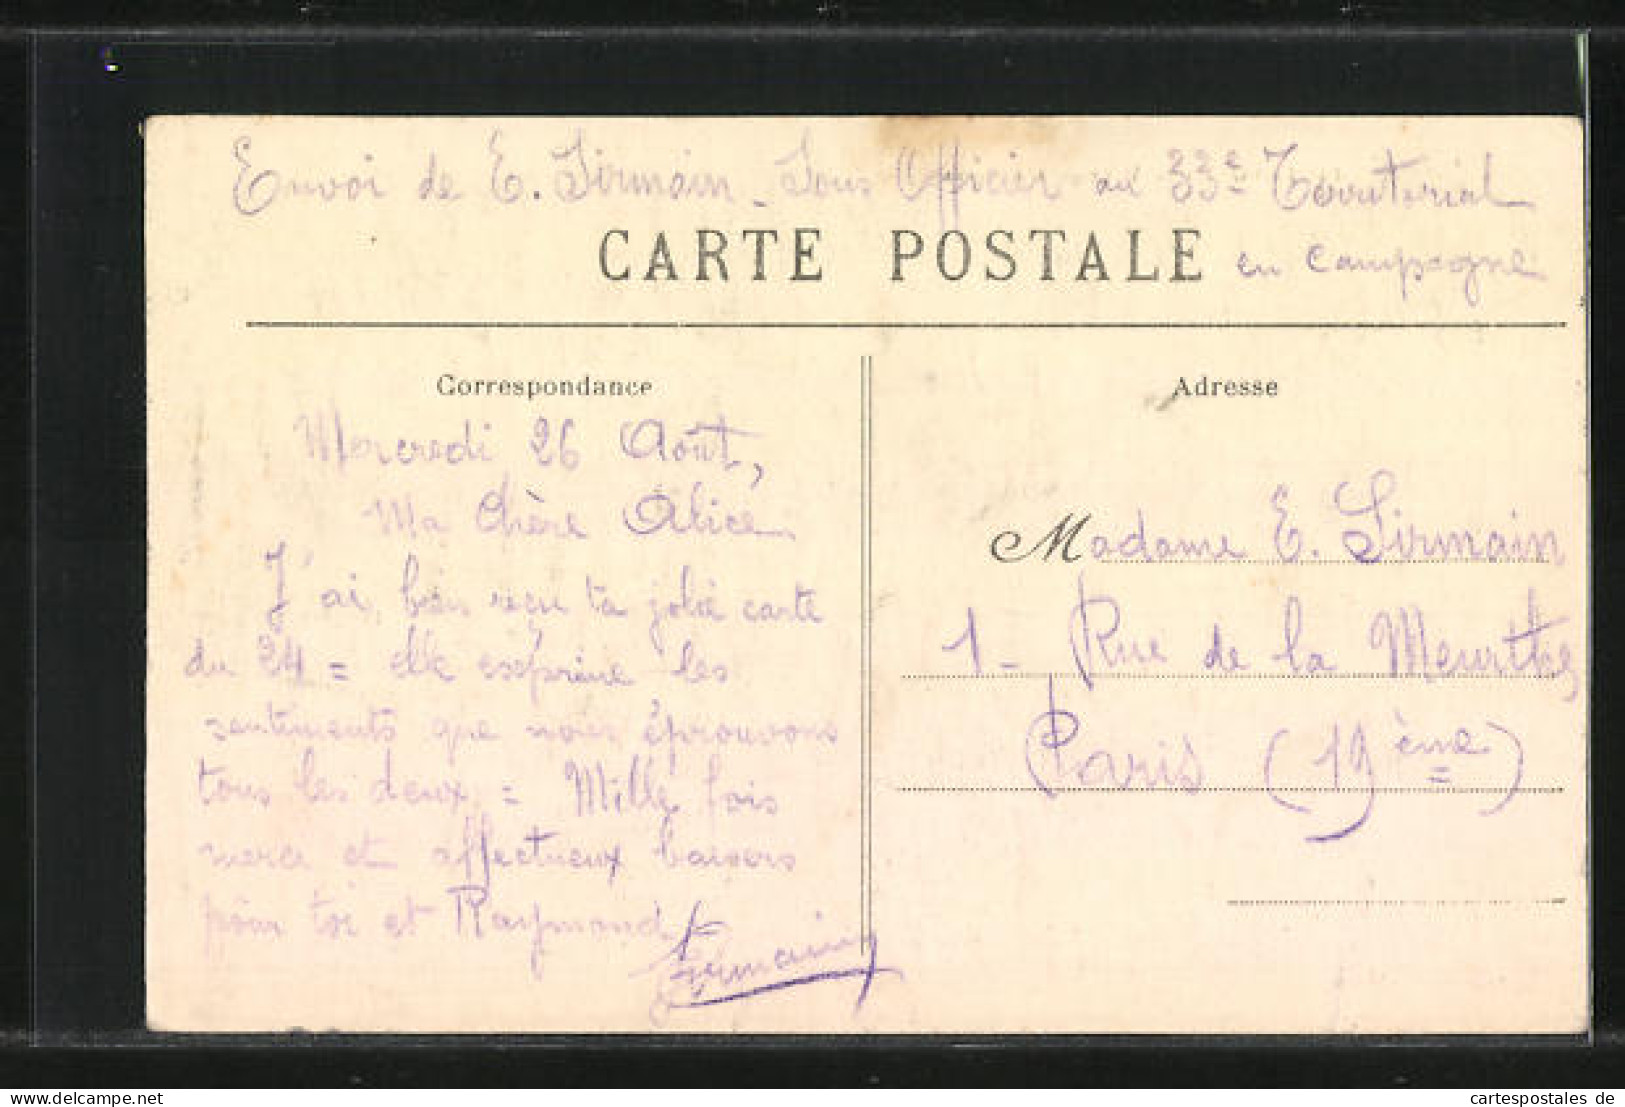 Envoi de E. Sirmain - Sous Officier au 33e Territorial
en campagne
CARTE POSTALE
Correspondance
Mercredi 26 Août,
Ma Chère Alice
J'ai bien reçu ta jolie carte
du 24 = elle exprime les
sentiments que nous éprouvons
tous les deux = Mille fois
merci et affectueux baisers
pour toi et Raymond
ESirmain
Adresse
Madame E. Sirmain
1 - Rue de la Meurthe
Paris (19ème)
www.cartespostales.eu
cartespostales de